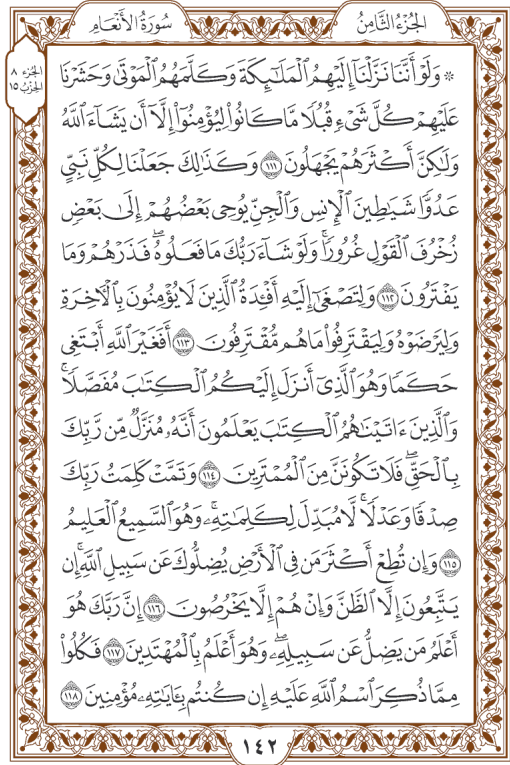 الجُزْءُ الثَّامِنُ
سُورَةُ الأَنْعَامِ
الجزء ٨
الحزب ١٥
۞ وَلَوْ أَنَّنَا نَزَّلْنَآ إِلَيْهِمُ ٱلْمَلَٰٓئِكَةَ وَكَلَّمَهُمُ ٱلْمَوْتَىٰ وَحَشَرْنَا
عَلَيْهِمْ كُلَّ شَىْءٍ قُبُلًا مَّا كَانُوا۟ لِيُؤْمِنُوٓا۟ إِلَّآ أَن يَشَآءَ ٱللَّهُ
وَلَٰكِنَّ أَكْثَرَهُمْ يَجْهَلُونَ ١١١ وَكَذَٰلِكَ جَعَلْنَا لِكُلِّ نَبِىٍّ
عَدُوًّا شَيَٰطِينَ ٱلْإِنسِ وَٱلْجِنِّ يُوحِى بَعْضُهُمْ إِلَىٰ بَعْضٍ
زُخْرُفَ ٱلْقَوْلِ غُرُورًا ۚ وَلَوْ شَآءَ رَبُّكَ مَا فَعَلُوهُ ۖ فَذَرْهُمْ وَمَا
يَفْتَرُونَ ١١٢ وَلِتَصْغَىٰٓ إِلَيْهِ أَفْـِٔدَةُ ٱلَّذِينَ لَا يُؤْمِنُونَ بِٱلْءَاخِرَةِ
وَلِيَرْضَوْهُ وَلِيَقْتَرِفُوا۟ مَا هُم مُّقْتَرِفُونَ ١١٣ أَفَغَيْرَ ٱللَّهِ أَبْتَغِى
حَكَمًا وَهُوَ ٱلَّذِىٓ أَنزَلَ إِلَيْكُمُ ٱلْكِتَٰبَ مُفَصَّلًا ۚ
وَٱلَّذِينَ ءَاتَيْنَٰهُمُ ٱلْكِتَٰبَ يَعْلَمُونَ أَنَّهُۥ مُنَزَّلٌ مِّن رَّبِّكَ
بِٱلْحَقِّ ۖ فَلَا تَكُونَنَّ مِنَ ٱلْمُمْتَرِينَ ١١٤ وَتَمَّتْ كَلِمَتُ رَبِّكَ
صِدْقًا وَعَدْلًا ۚ لَّا مُبَدِّلَ لِكَلِمَٰتِهِۦ ۚ وَهُوَ ٱلسَّمِيعُ ٱلْعَلِيمُ
١١٥ وَإِن تُطِعْ أَكْثَرَ مَن فِى ٱلْأَرْضِ يُضِلُّوكَ عَن سَبِيلِ ٱللَّهِ ۚ إِن
يَتَّبِعُونَ إِلَّا ٱلظَّنَّ وَإِنْ هُمْ إِلَّا يَخْرُصُونَ ١١٦ إِنَّ رَبَّكَ هُوَ
أَعْلَمُ مَن يَضِلُّ عَن سَبِيلِهِۦ ۖ وَهُوَ أَعْلَمُ بِٱلْمُهْتَدِينَ ١١٧ فَكُلُوا۟
مِمَّا ذُكِرَ ٱسْمُ ٱللَّهِ عَلَيْهِ إِن كُنتُم بِـَٔايَٰتِهِۦ مُؤْمِنِينَ ١١٨
١٤٢